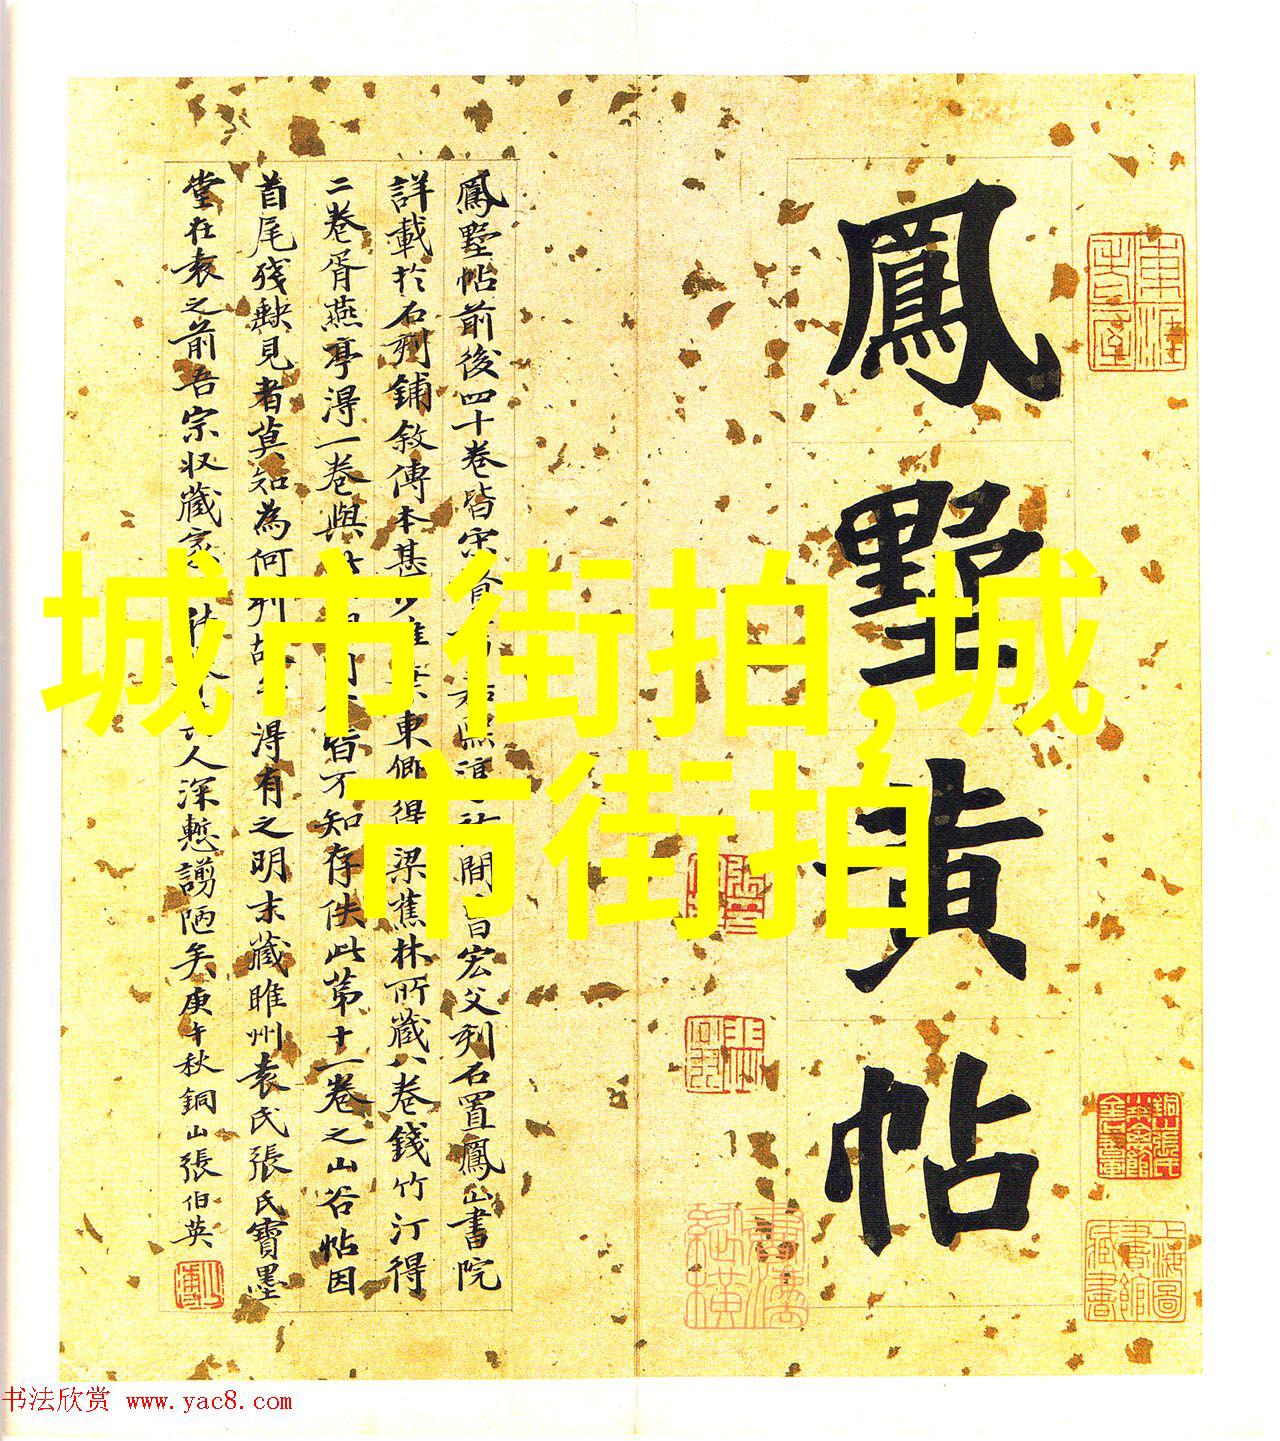 鳳墅黃帖
鳳墅帖前後四十卷皆宋 熙淳祐間 宏父刻石置鳳山書院
詳載於石刻鋪敘傳本甚少 葉東卿得梁蕉林所藏八卷錢竹汀得
二卷胥燕亭得一卷與 皆不知存佚此第十一卷之山谷帖因
首尾殘缺見者莫知為何刻故 得有之明末藏睢州袁氏張氏寶墨
堂在袁之前吾宗收藏家 人深慙謭陋矣庚午秋銅山張伯英
城市街拍,城
市街拍
上海圖書館藏書
书法欣赏 www.yac8.com